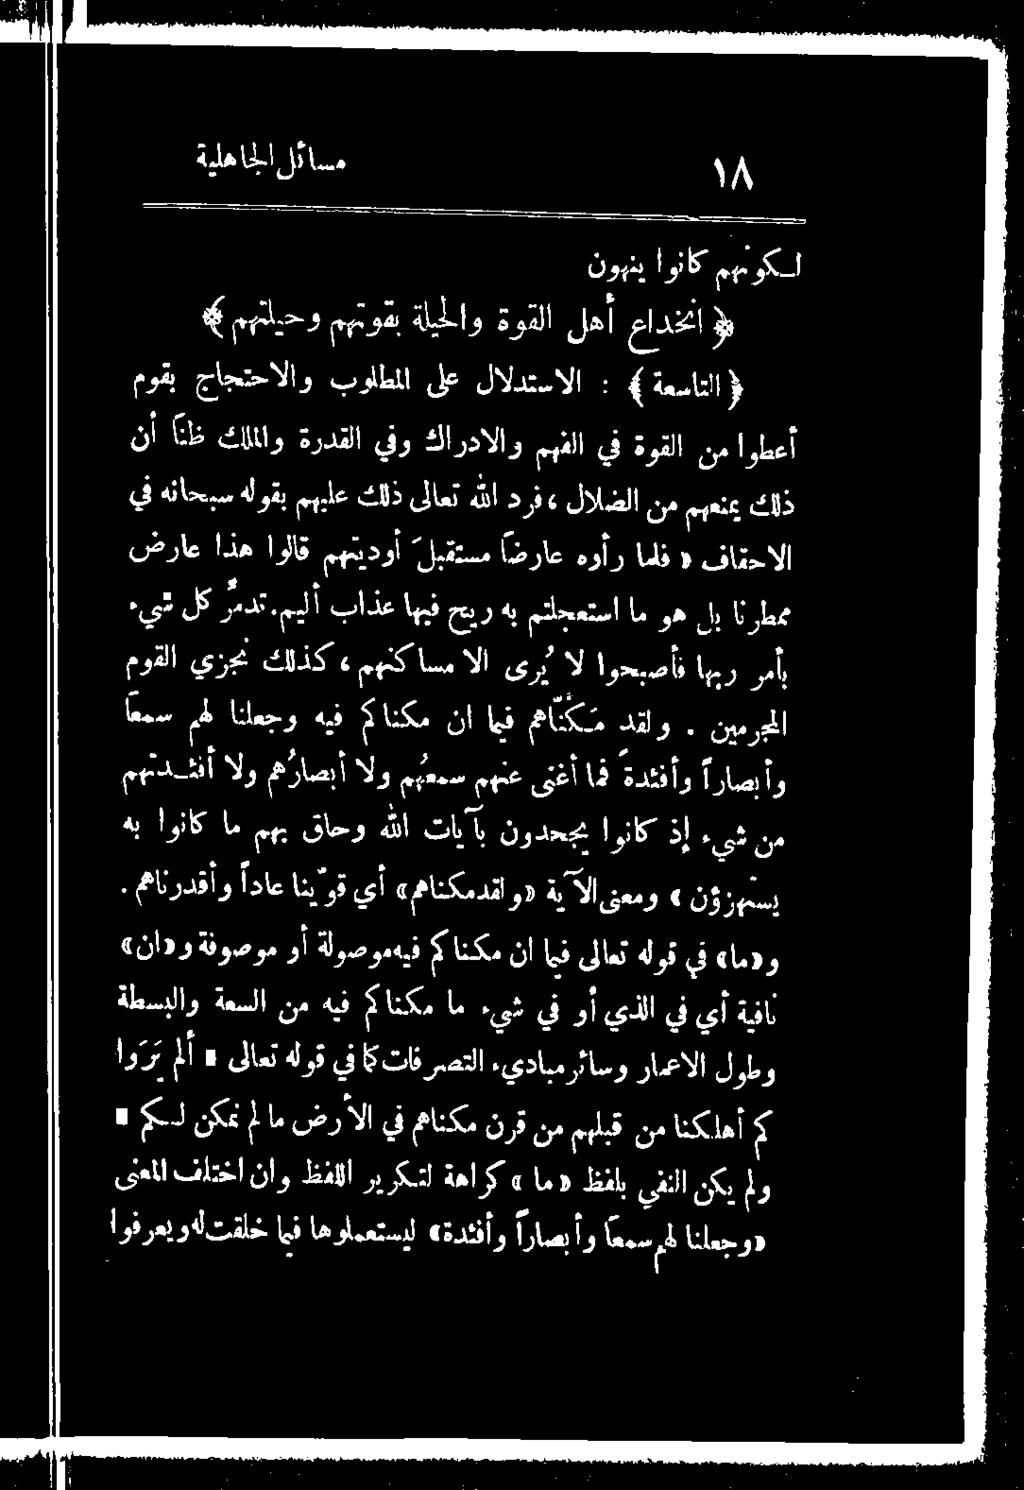 ١٨ مسائل الجاهلية
لـكونهم كانوا ينهون
﴿ انخداع أهل القوة والحيلة بقوتهم وحيلتهم ﴾
﴿ التاسعة ﴾ : الاستدلال على المطلوب والاحتجاج بقوم
أعطوا من القوة في الفهم والادراك وفي القدرة والملك ظنًا أن
ذلك يمنعهم من الضلال ، فرد الله تعالى ذلك عليهم بقوله سبحانه في
الاحقاف « فلما رأوه عارضًا مستقبلَ أوديتهم قالوا هذا عارض
ممطرنا بل هو ما استعجلتم به ريح فيها عذاب أليم . تدمّر كل شيء
بأمر ربها فأصبحوا لا يُرى الا مساكنهم ، كذلك نجزي القوم
المجرمين . ولقد مَكَّنّاهم فيما ان مكناكم فيه وجعلنا لهم سمعًا
وأبصارًا وأفئدةً فما أغنى عنهم سمعُهم ولا أبصارُهم ولا أفئـدتهم
من شيء إذ كانوا يجحدون بآيات الله وحاق بهم ما كانوا به
يستهزؤن » ومعنى الآية «ولقد مكناهم» أي قوّينا عادًا وأقدرناهم .
و«ما» في قوله تعالى فيما ان مكناكم فيه موصولة أو موصوفة و«ان»
نافية أي في الذي أو في شيء ما مكناكم فيه من السعة والبسطة
وطول الاعمار وسائر مبادىء التصرفات كما في قوله تعالى « ألم يَرَوا
كم أهلكنا من قبلهم من قرن مكناهم في الأرض ما لم نمكن لـكم »
ولم يكن النفي بلفظ «ما » كراهة لتكرير اللفظ وان اختلف المعنى
«وجعلنا لهم سمعًا وأبصارًا وأفئدة» ليستعملوها فيما خلقت له ويعرفوا